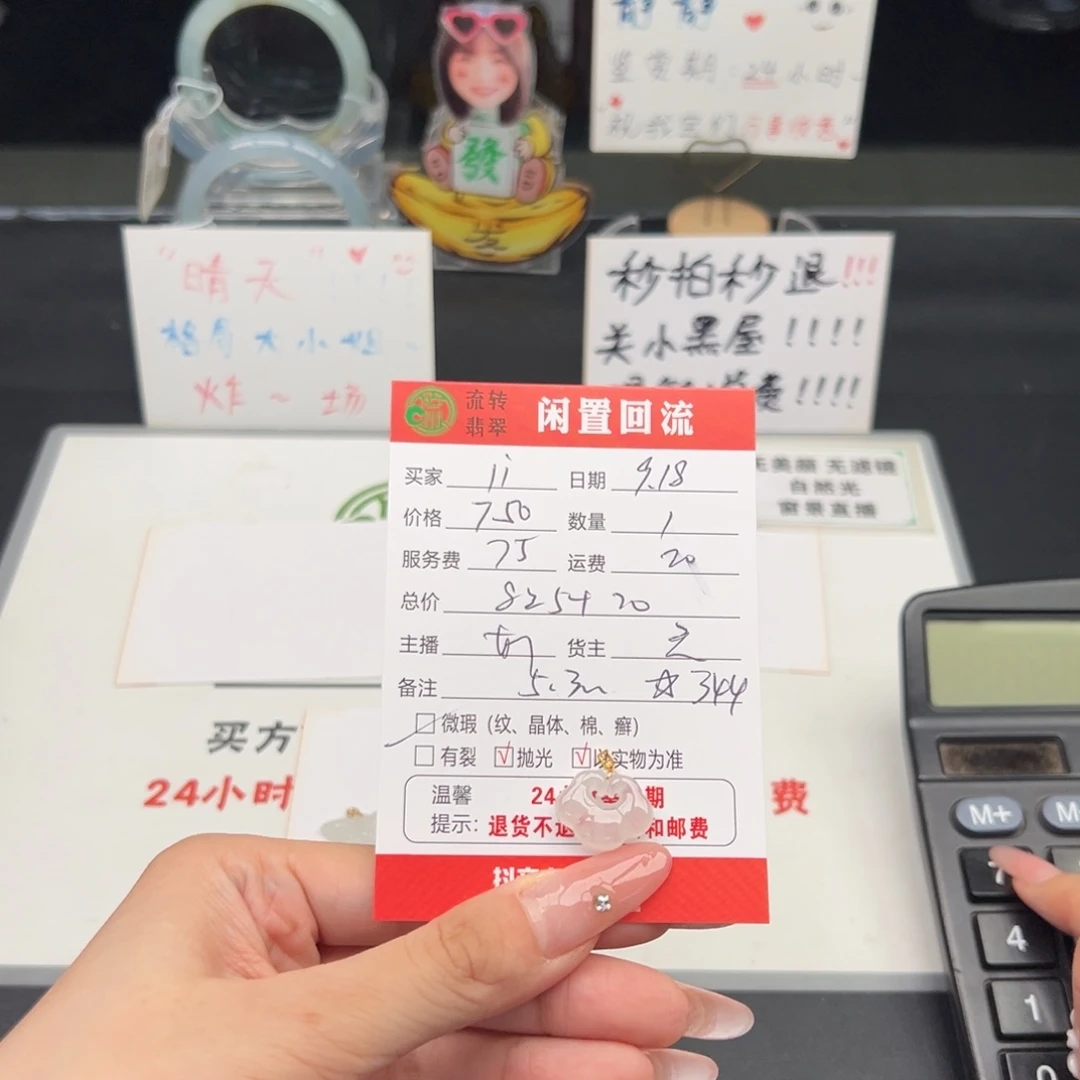 静静
鉴赏期 24小时
發
"晴天"
大小姐~
炸~场
秒拍秒退!!!
关小黑屋!!!!
费!!!!
流转翡翠 闲置回流
买家 ji 日期 9.18
价格 750 数量 1
服务费 75 运费 20
总价 825+20
主播 货主
备注 ☆344
微瑕(纹、晶体、棉、癣)
有裂 √抛光 √以实物为准
温馨提示: 24 期
退货不退 和邮费
无美颜 无滤镜
自然光
窗景直播
买方
24小时 费
M+
7
4
1
0